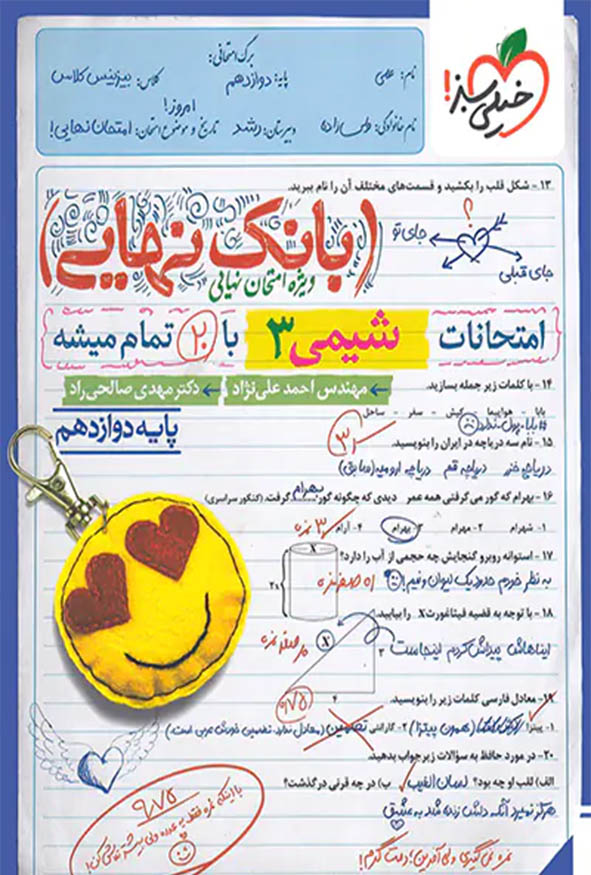 خیلی سبز!
برگ امتحانی:
نام: علی
پایه: دوازدهم
کلاس: بیزینس کلاس
نام خانوادگی:
دبیرستان: رشد
تاریخ و موضوع امتحان: امروز! امتحان نهایی!
۱۳ - شکل قلب را بکشید و قسمت‌های مختلف آن را نام ببرید.
؟
جای تو
جای قبلی
(بانک نهایی)
ویژه امتحان نهایی
امتحانات شیمی ۳ با ۲۰ تمام میشه
مهندس احمد علی‌نژاد
دکتر مهدی صالحی‌راد
پایه دوازدهم
۱۴ - با کلمات زیر جمله بسازید.
بابا - هواپیما - کیش - سفر - ساحل
#بابا_پول_نداره
۱۵ - نام سه دریاچه در ایران را بنویسید.
دریاچه خزر دریاچه قم دریاچه ارومیه (سابق)
۱۶ - بهرام که گور می‌گرفتی همه عمر دیدی که چگونه گور بهرام گرفت. (کنکور سراسری)
۱- شهرام ۲- مهرام ۳- بهرام ۴- آرام
۱۷ - استوانه روبرو گنجایش چه حجمی از آب را دارد؟
X
۲x
به نظر خودم حدود یک لیوان و نیم!
۱۸ - با توجه به قضیه فیثاغورث X را بیابید.
X
۳
۴
ایناهاش پیداش کردم اینجاست
۱۹ - معادل فارسی کلمات زیر را بنویسید.
۱- پیتزا (همون پیتزا) ۲- گارانتی تضمین (معادل ندارد. تضمین خودش عربی است.)
۲۰ - در مورد حافظ به سؤالات زیر جواب بدهید.
الف) لقب او چه بود؟ لسان الغیب ب) در چه قرنی درگذشت؟
هرگز نمیرد آنکه دلش زنده شد به عشق
۹/۷۵
نمره نمی‌گیری ولی آفرین! دمت گرم!